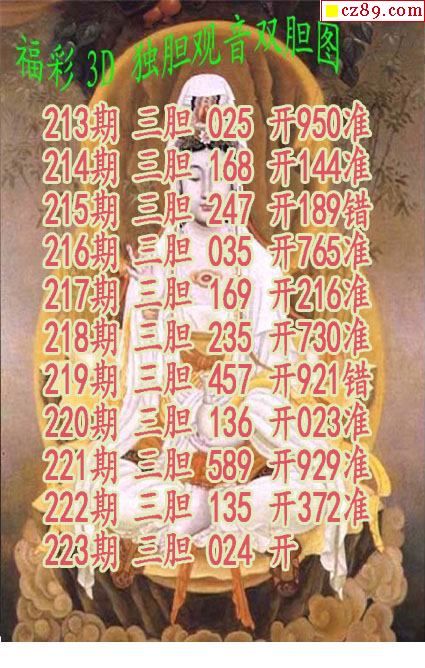 cz89.com
福彩 3D 独胆观音双胆图
213期 三胆 025 开950准
214期 三胆 168 开144准
215期 三胆 247 开189错
216期 三胆 035 开765准
217期 三胆 169 开216准
218期 三胆 235 开730准
219期 三胆 457 开921错
220期 三胆 136 开023准
221期 三胆 589 开929准
222期 三胆 135 开372准
223期 三胆 024 开